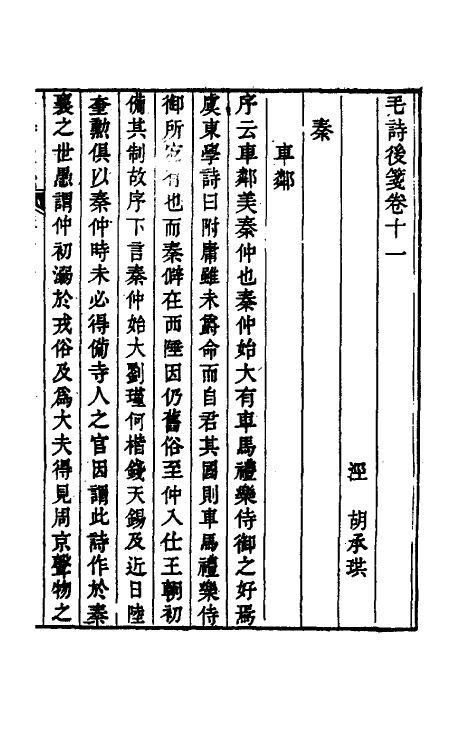 毛詩後箋卷十一
涇　胡承珙
秦
車鄰
序云車鄰美秦仲也秦仲始大有車馬禮樂侍御之好焉
虞東學詩曰附庸雖未爵命而自君其國則車馬禮樂侍
御所宜有也而秦僻在西陲因仍舊俗至仲入仕王朝初
備其制故序下言秦仲始大劉瑾何楷錢天錫及近日陸
奎勲俱以秦仲時未必得備寺人之官因謂此詩作於秦
襄之世愚謂仲初溺於戎俗及爲大夫得見周京聲物之